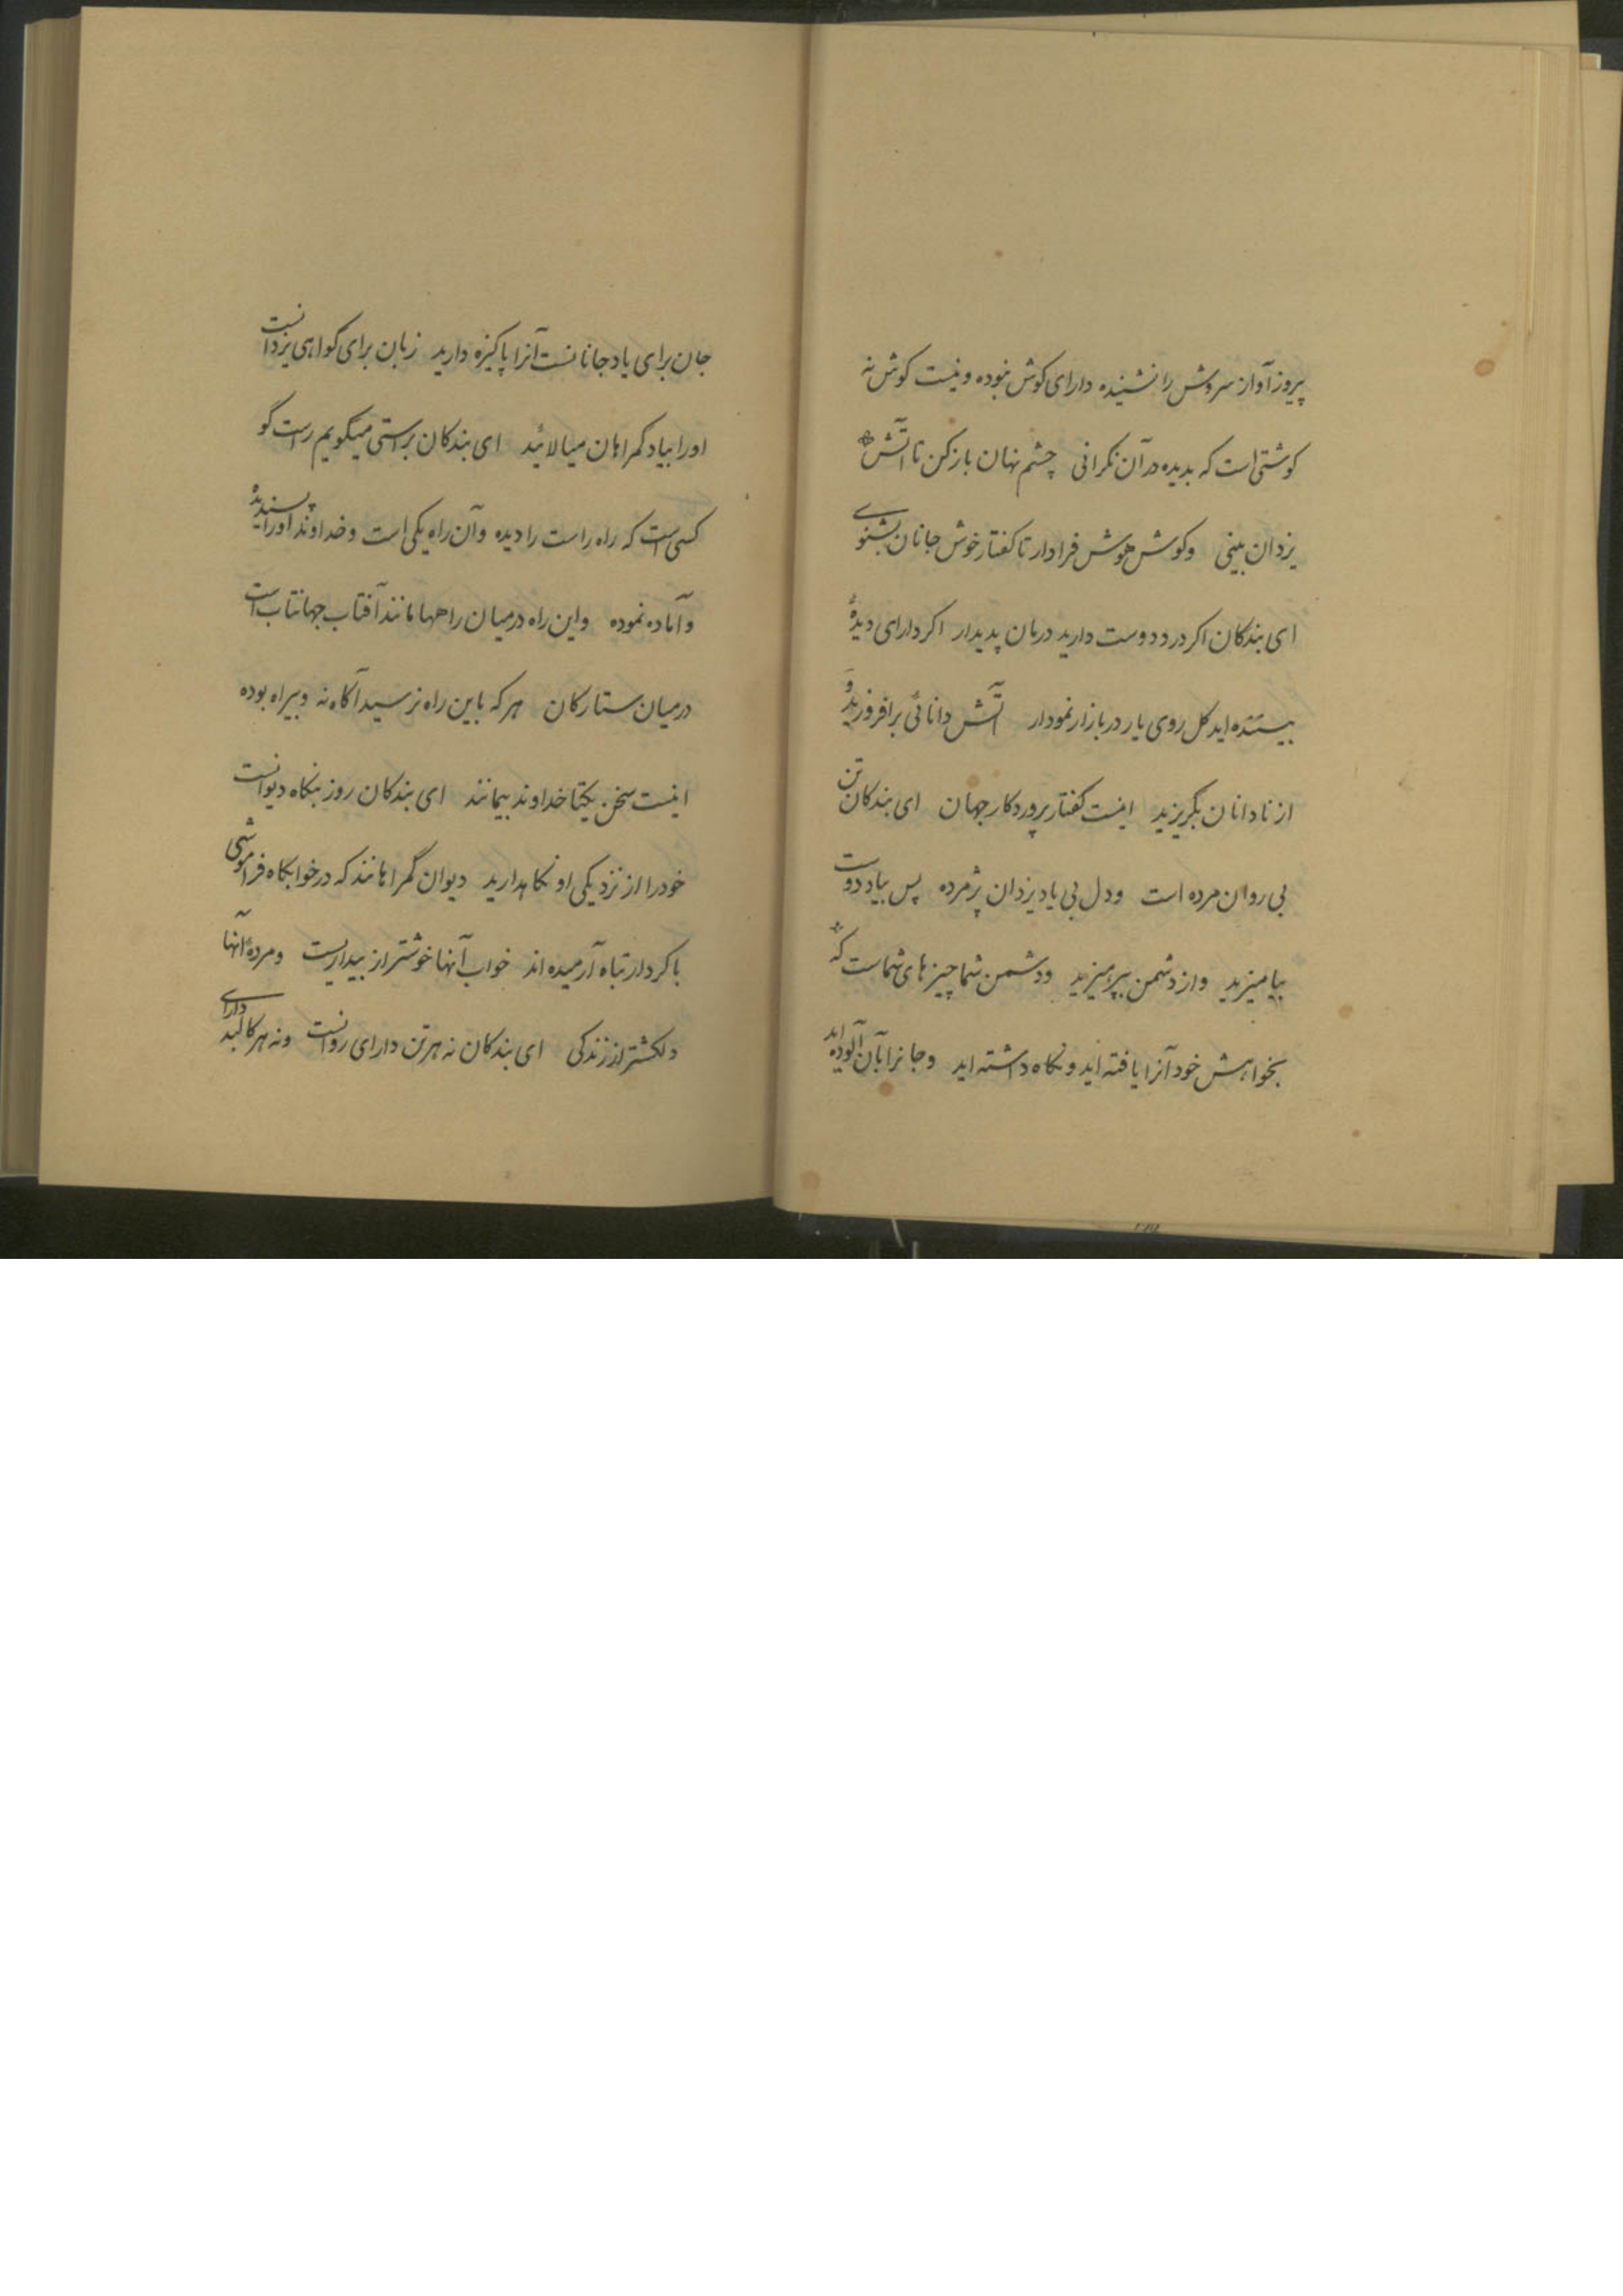 پیروز آواز سروش را نشنیده دارای کوش نبوده و نیست کوش نه
کوشتی است که بدیده در آن نکرانی چشم نهان باز کن تا آتش
یزدان بینی و کوش هوش فرا دار تا کفتار خوش جانان بشنوی
ای بندکان اکر درد دوست دارید درمان پدیدار اکر دارای دیدهٔ
بیننده اید کل روی یار در بازار نمودار آتش دانائی برافروزید و
از نادانان بگریزید اینست کفتار پروردکار جهان ای بندکان تن
بی روان مرده است و دل بی یاد یزدان پژمرده پس بیاد دوست
بیامیزید و از دشمن بپرهیزید و دشمن شما چیزهای شماست که
بخواهش خود آنرا یافته اید و نکاه داشته اید و جانرا بآن آلوده اید
جان برای یاد جانانست آنرا پاکیزه دارید زبان برای کواهی یزدانست
او را بیاد کمراهان میالائید ای بندکان براستی میکویم راست کو
کسی است که راه راست را دیده و آن راه یکی است و خداوند او را پسندیدهٔ
و آماده نموده و این راه در میان راهها مانند آفتاب جهانتاب است
در میان ستارکان هر که باین راه نرسید آکاه نه و بیراه بوده
اینست سخن یکتا خداوند بیمانند ای بندکان روزنکاه دیوانست
خود را از نزدیکی او نکاهدارید دیوان گمراهانند که در خوابکاه فراموشی
با کردار تباه آرمیده اند خواب آنها خوشتر از بیداریست و مردهٔ آنها
دلکشتر از زندکی ای بندکان نه هر تن دارای روانست و نه هر کالبد دارای